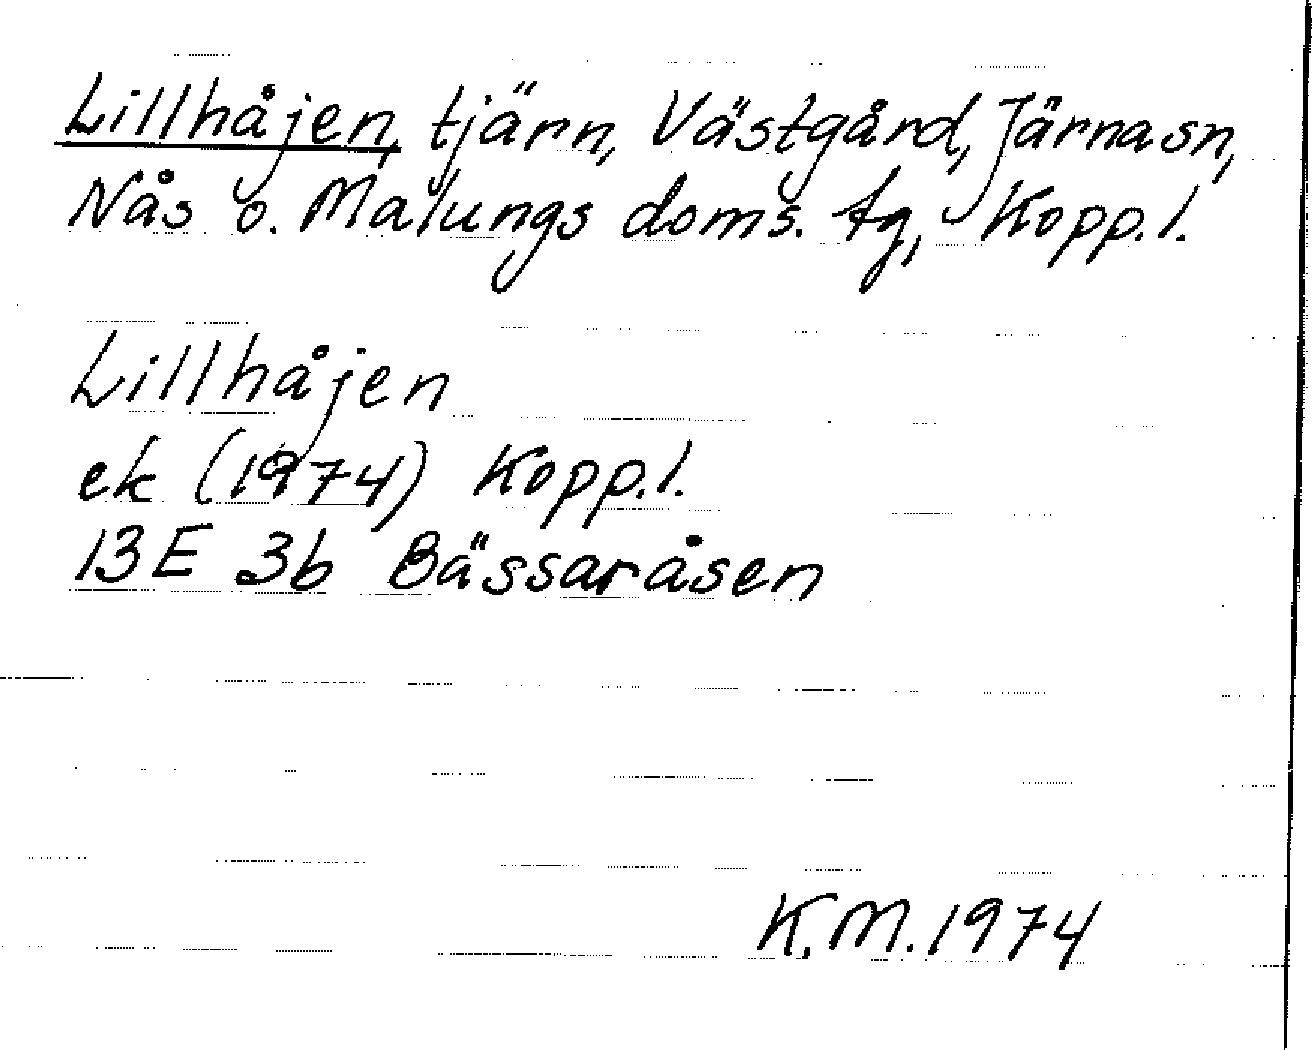 Lillhåjen, tjärn, Västgård, Järnasn,
Nås o. Malungs doms. tg, Kopp.l.
Lillhåjen
ek (1974) Kopp.l.
13E 3b Bässaråsen
K.M. 1974